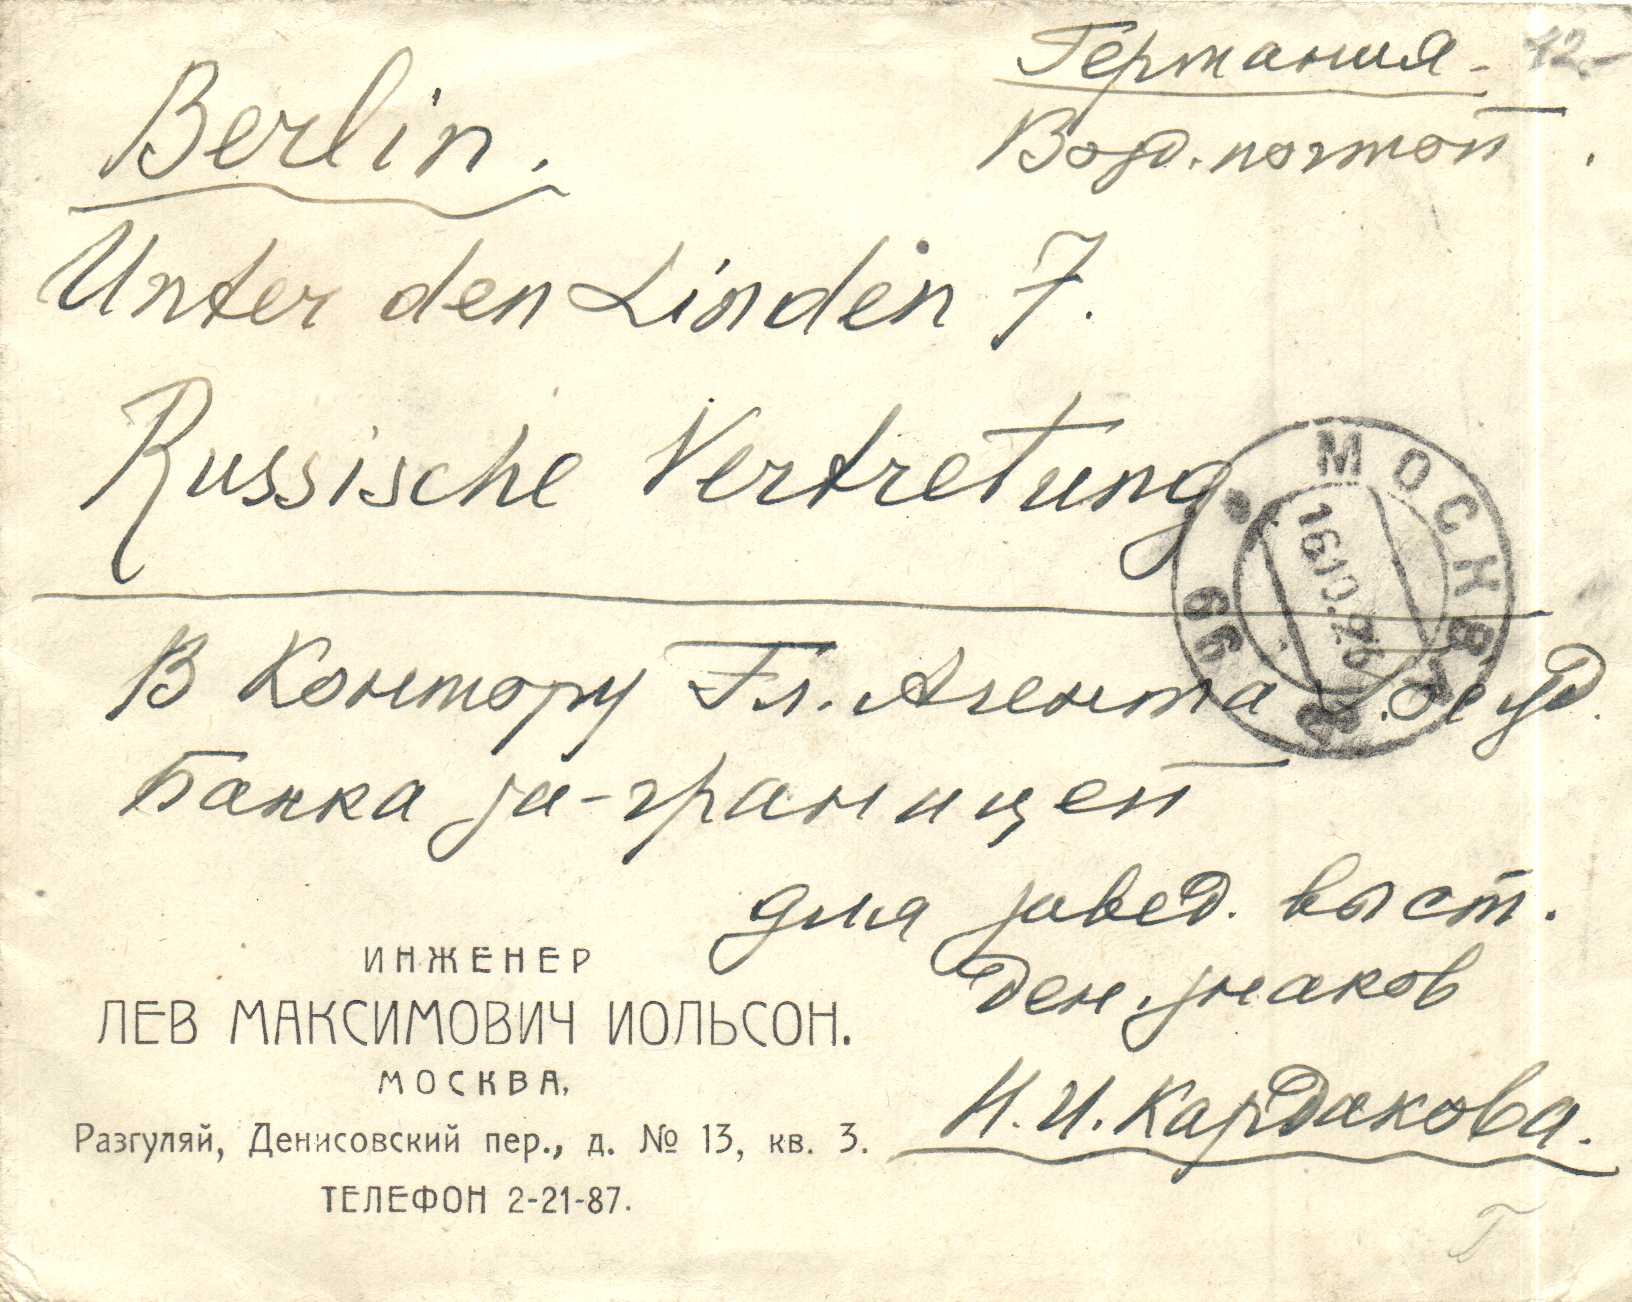 Германия - 12.-
Возд. почтой.
Berlin.
Unter den Linden 7.
Russische Vertretung
МОСКВА
16.10.26
66
В Контору Гл. Агента Госуд.
Банка за-границей
для завед. выст.
ден. знаков
Н. И. Кардакова.
ИНЖЕНЕР
ЛЕВ МАКСИМОВИЧ ИОЛЬСОН.
МОСКВА,
Разгуляй, Денисовский пер., д. № 13, кв. 3.
ТЕЛЕФОН 2-21-87.